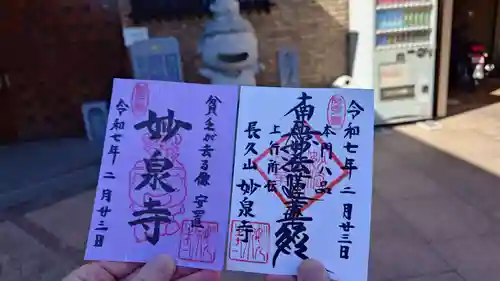 貧乏が去る像 安置
妙泉寺
令和七年 二月廿三日
令和七年 二月廿三日
本門八品
南無妙法蓮華経
上行所伝
長久山 妙泉寺